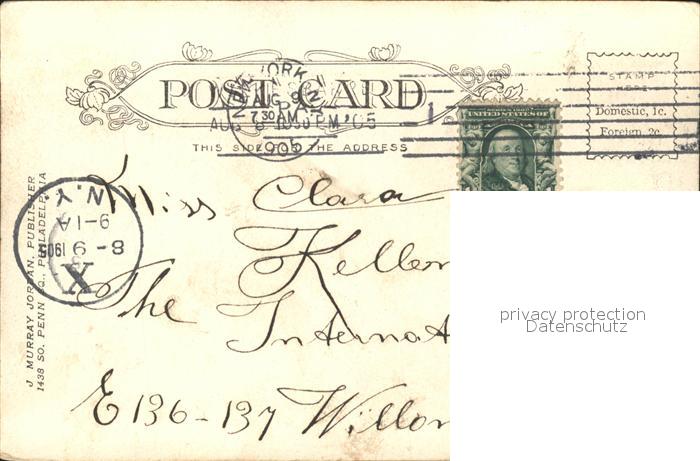 POST CARD
STAMP HERE
Domestic, 1c.
Foreign, 2c.
NEW YORK, N.Y.
AUG 9
7.30 AM
AUG 8 PM '05
1905
UNITED STATES OF
THIS SIDE FOR THE ADDRESS
N.Y.
9-1A
8-9 1905
X
J. MURRAY JORDAN, PUBLISHER
1438 SO. PENN SQ., PHILADELPHIA
Miss Clara
Keller
The Internat
E 136-137 Willow
privacy protection
Datenschutz